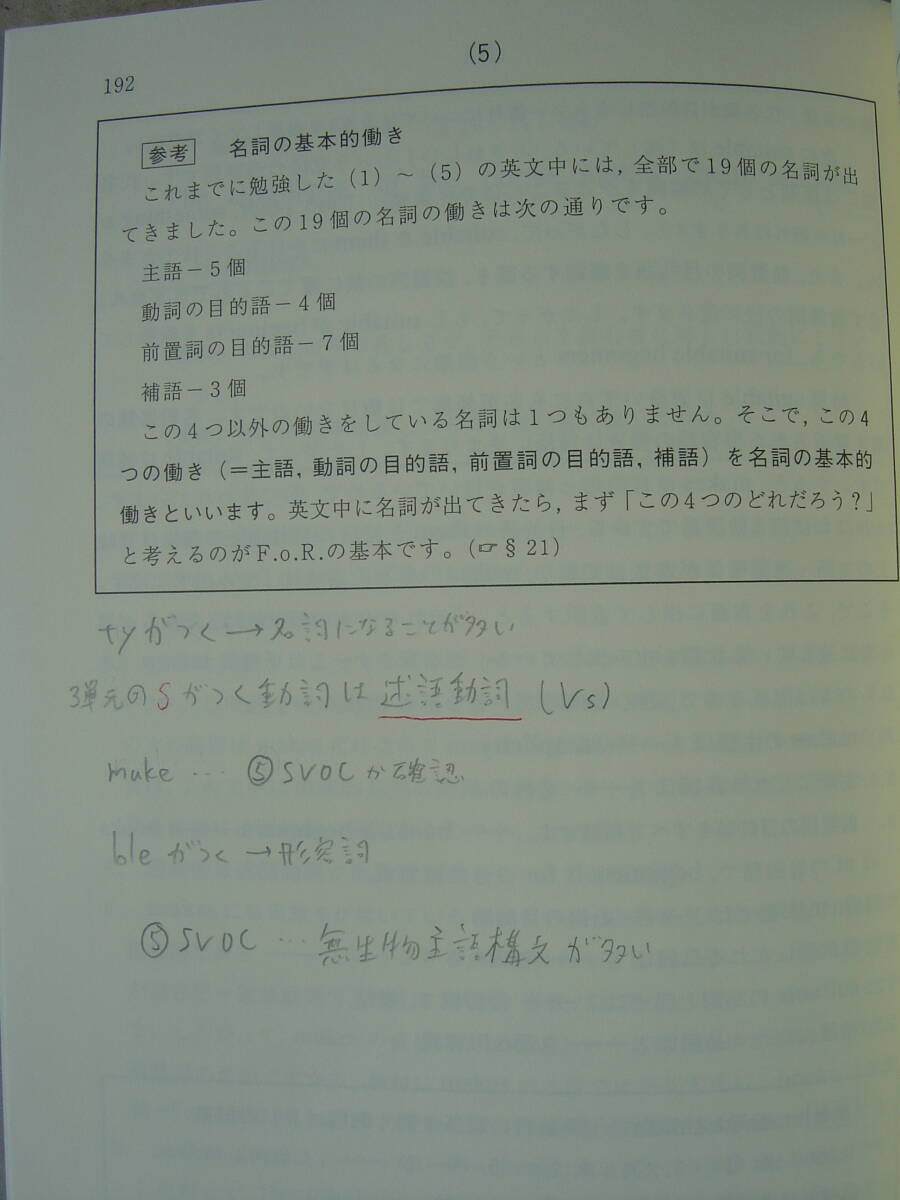 (5)
192
参考 名詞の基本的働き
これまでに勉強した（1）～（5）の英文中には，全部で19個の名詞が出
てきました。この19個の名詞の働きは次の通りです。
主語－5個
動詞の目的語－4個
前置詞の目的語－7個
補語－3個
この4つ以外の働きをしている名詞は1つもありません。そこで，この4
つの働き（＝主語，動詞の目的語，前置詞の目的語，補語）を名詞の基本的
働きといいます。英文中に名詞が出てきたら，まず「この4つのどれだろう？」
と考えるのがF.o.R.の基本です。（☞§21）
tyがつく→名詞になることが多い
3単元のSがつく動詞は述語動詞（Vs）
make … ⑤SVOCか確認
bleがつく→形容詞
⑤SVOC … 無生物主語構文が多い